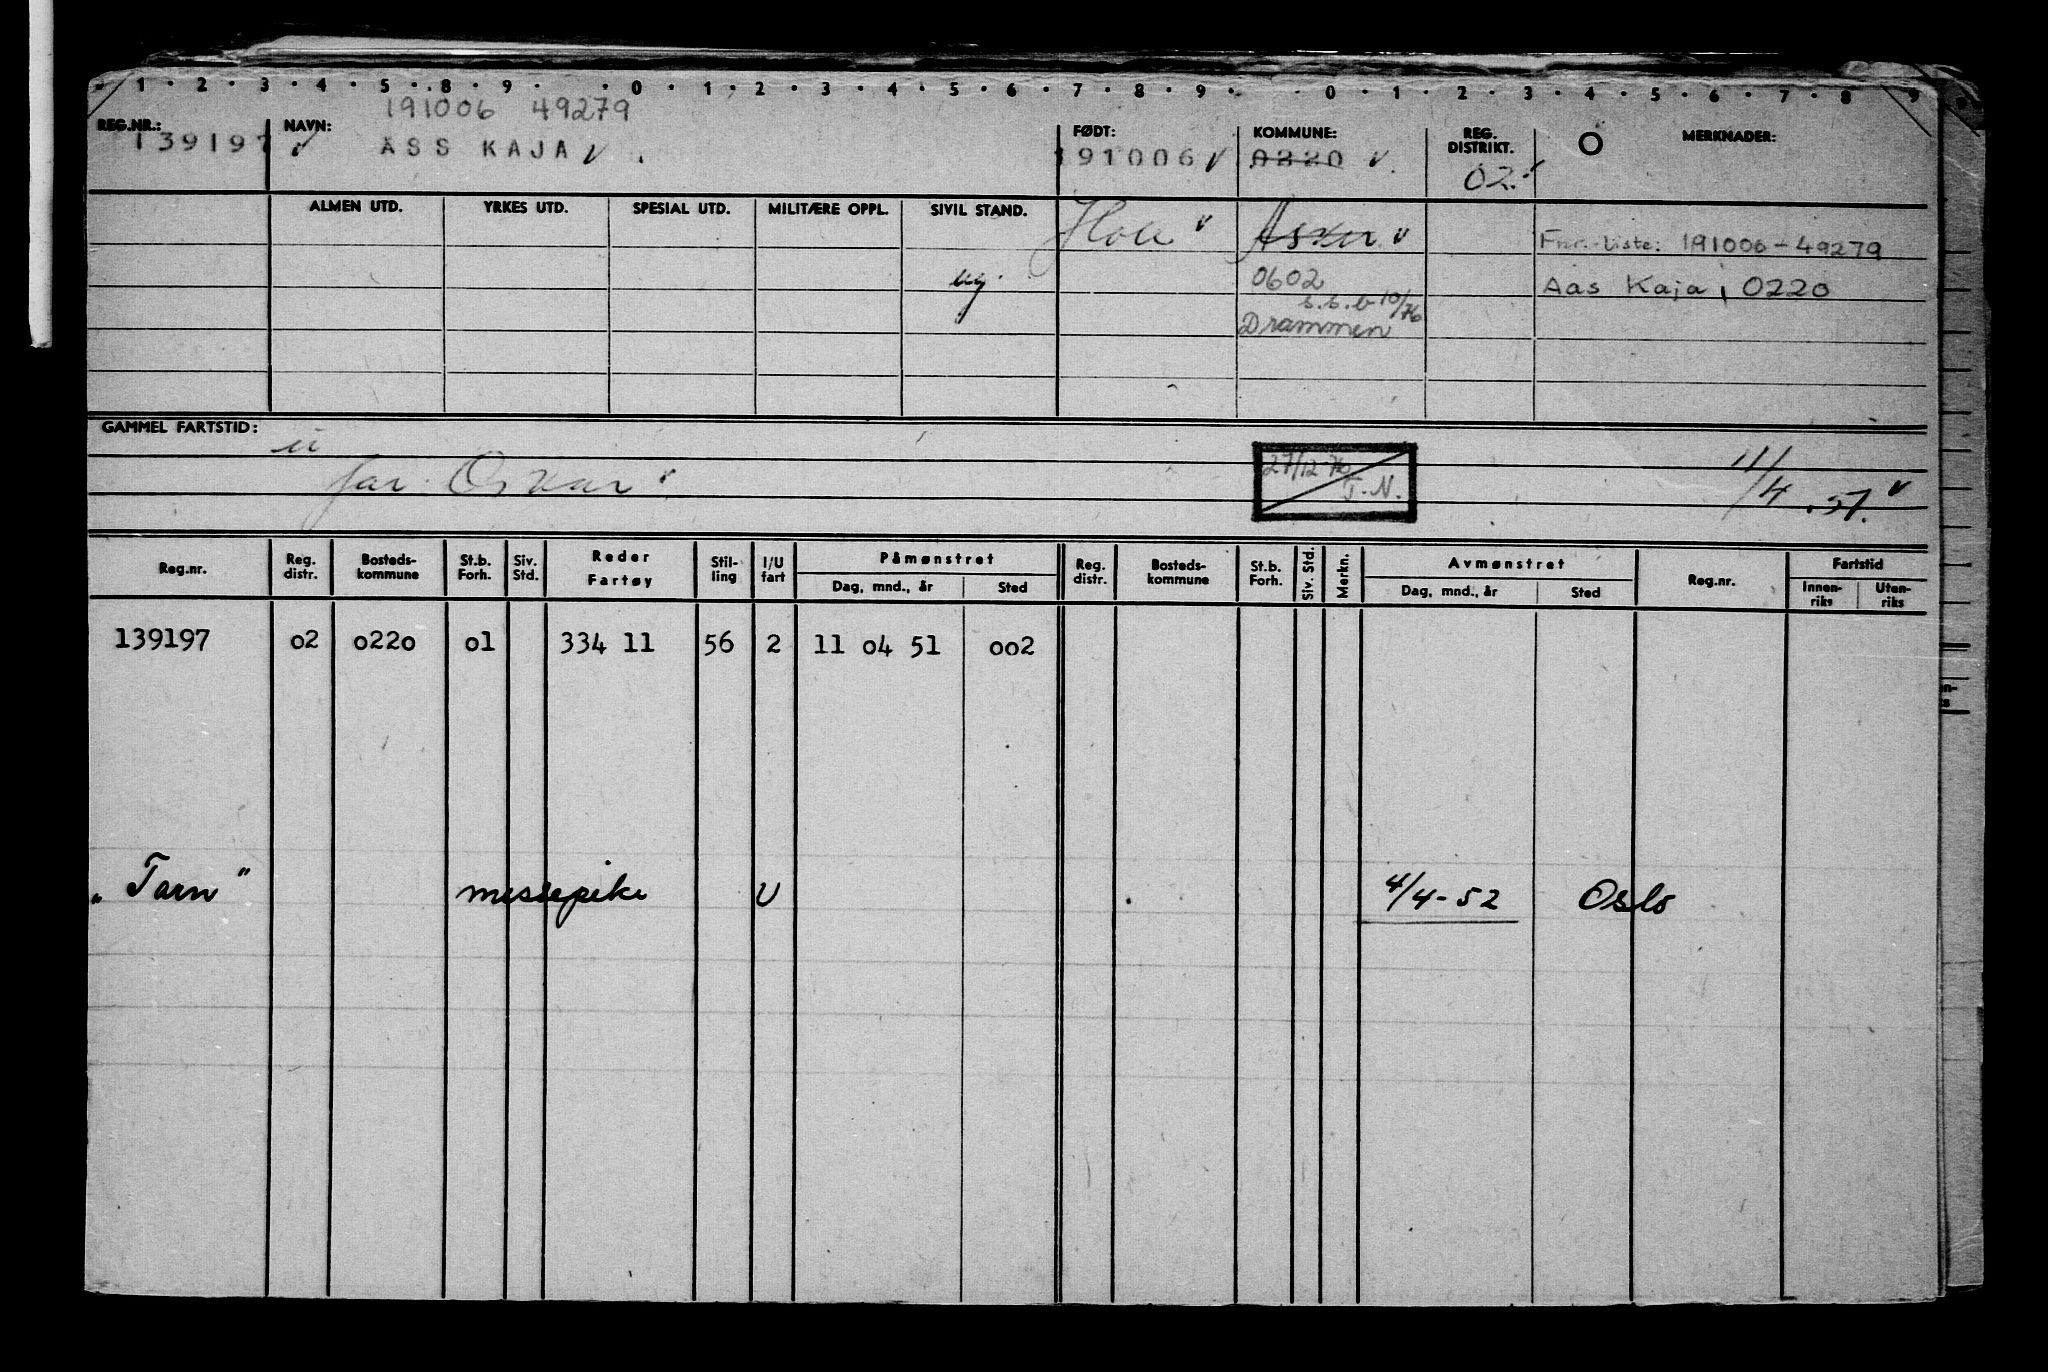 1 · 2 · 3 · 4 · 5 · 8 · 9 · 0 · 1 · 2 · 3 · 4 · 5 · 6 · 7 · 8 · 9 · 0 · 1 · 2 · 3 · 4 · 5 · 6 · 7 · 8 · 9
191006 49279
REG.NR.: NAVN: FØDT: KOMMUNE: REG. DISTRIKT. O MERKNADER:
139197 ✓ ASS KAJA ✓ 191006 ✓ 0220 ✓ 02.
ALMEN UTD. YRKES UTD. SPESIAL UTD. MILITÆRE OPPL. SIVIL STAND.
Hole ✓ Asker ✓ Fnr.-liste: 191006-49279
ug. 0602 Aas Kaja, 0220
s.s.b 10/76
Drammen
GAMMEL FARTSTID:
far. Oskar ✓ 27/12 76 T.N. 11/4 .51. ✓
Reg.nr. Reg. distr. Bosteds-kommune St.b. Forh. Siv. Std. Reder Fartøy Stil-ling I/U fart Påmønstret Dag, mnd., år Sted Reg. distr. Bosteds-kommune St.b. Forh. Siv. Std. Merkn. Avmønstret Dag, mnd., år Sted Reg.nr. Fartstid Innen-riks Uten-riks
139197 02 0220 01 334 11 56 2 11 04 51 002
"Tarn" messepike U 4/4-52 Oslo